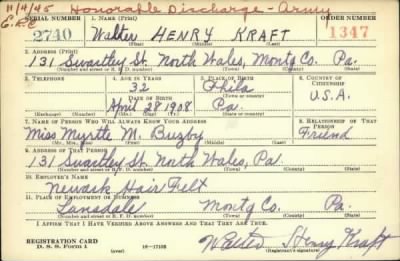 11/9/45 Honorable Discharge - Army
SERIAL NUMBER 1. NAME (Print) ORDER NUMBER
2740 Walter HENRY KRAFT 1347
(First) (Middle) (Last)
2. ADDRESS (Print)
131 Swartley St. North Wales, Montg Co. Pa.
(Number and street or R. F. D. number) (Town) (County) (State)
3. TELEPHONE 4. AGE IN YEARS 5. PLACE OF BIRTH 6. COUNTRY OF CITIZENSHIP
32 Phila
DATE OF BIRTH (Town or county)
April 28 1908 Pa. U.S.A.
(Exchange) (Number) (Mo.) (Day) (Yr.) (State or country)
7. NAME OF PERSON WHO WILL ALWAYS KNOW YOUR ADDRESS 8. RELATIONSHIP OF THAT PERSON
Miss Myrtle M. Buzby Friend
(Mr., Mrs., Miss) (First) (Middle) (Last)
9. ADDRESS OF THAT PERSON
131 Swartley St. North Wales, Pa.
(Number and street or R. F. D. number) (Town) (County) (State)
10. EMPLOYER'S NAME
Newark Hair Felt
11. PLACE OF EMPLOYMENT OR BUSINESS
Lansdale Montg Co. Pa.
(Number and street or R. F. D. number) (Town) (County) (State)
I AFFIRM THAT I HAVE VERIFIED ABOVE ANSWERS AND THAT THEY ARE TRUE.
REGISTRATION CARD
D. S. S. Form 1 (over) 16-17105 Walter Henry Kraft
(Registrant's signature)